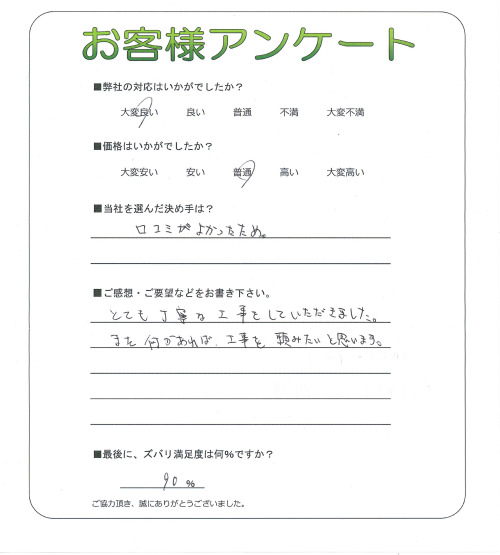 お客様アンケート
■弊社の対応はいかがでしたか？
大変良い 良い 普通 不満 大変不満
■価格はいかがでしたか？
大変安い 安い 普通 高い 大変高い
■当社を選んだ決め手は？
口コミがよかったため。
■ご感想・ご要望などをお書き下さい。
とても丁寧な工事をしていただきました。
また何かあれば、工事を頼みたいと思います。
■最後に、ズバリ満足度は何%ですか？
90 %
ご協力頂き、誠にありがとうございました。